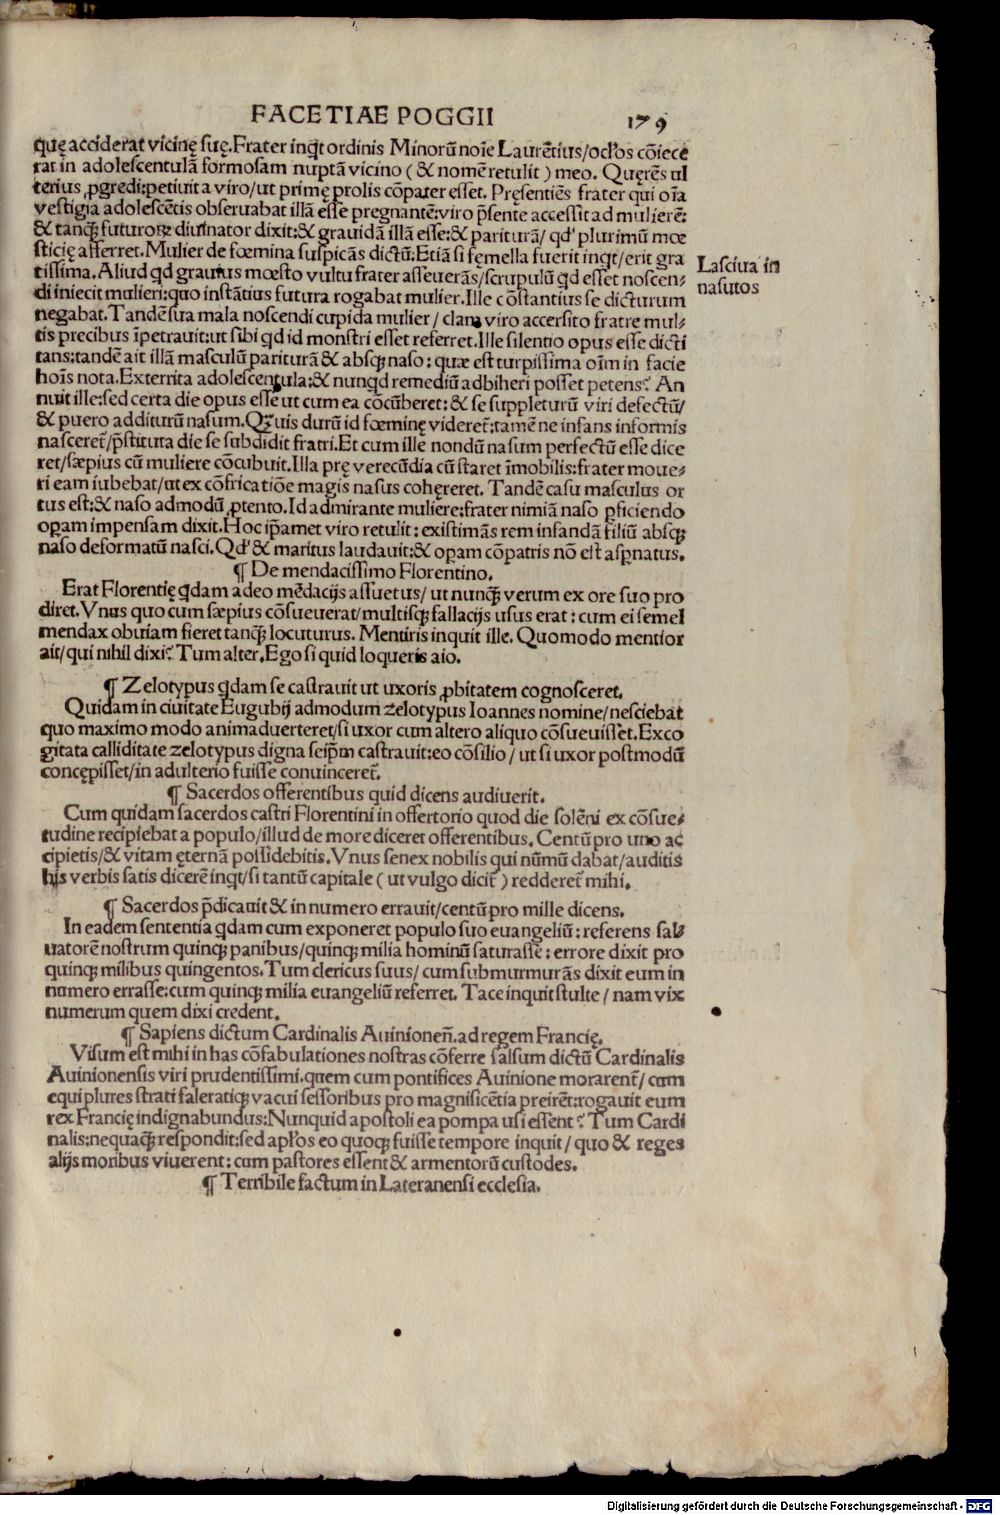 FACETIAE POGGII 179
quę acciderat vicinę suę. Frater inqͥt ordinis Minorū noīe Laurētius/ocłos cōiece
rat in adolescentulā formosam nuptā vicino (& nomē retulit) meo. Querēs ul
terius ꝓgredi: petiuit a viro/ut primę prolis cōpater esset. Pręsentiēs frater qui oīa
vestigia adolescētis obseruabat illā esse pregnantē: viro p̄sente accessit ad mulierē:
& tanqꝫ futuroꝝ diuinator dixit: & grauidā illā esse: & pariturā/ qd' plurimū mœ
sticię afferret. Mulier de fœmina suspicās dictū: Etiā si fęmella fuerit inqͥt/erit gra
tissima. Aliud qd grauius mœsto vultu frater asseuerās/scrupulū qd esset noscen-
di iniecit mulieri: quo instātius futura rogabat mulier. Ille cōstantius se dicturum
negabat. Tandē sua mala noscendi cupida mulier/ clam viro accersito fratre mul-
tis precibus īpetrauit: ut sibi qd id monstri esset referret. Ille silentio opus esse dicti
tans: tandē ait illā masculū pariturā & absqꝫ naso: quæ est turpissima oīm in facie
hoīs nota. Exterrita adolescentula: & nunqd remediū adhiberi posset petens? An
nuit ille: sed certa die opus esse ut cum ea cōcūberet: & se suppleturū viri defectū/
& puero additurū nasum. Qꝫuis durū id fœminę videret᷑: tamē ne infans informis
nasceret᷑/p̄stituta die se subdidit fratri. Et cum ille nondū nasum perfectū esse dice
ret/sæpius cū muliere cōcubuit. Illa prę verecūdia cū staret īmobilis: frater moue-
ri eam iubebat/ut ex cōfricatiōe magis nasus cohęreret. Tandē casu masculus or
tus est: & naso admodū ꝓtento. Id admirante muliere: frater nimiā naso ꝑficiendo
oꝑam impensam dixit. Hoc ip̄amet viro retulit: existimās rem infandā filiū absqꝫ
naso deformatū nasci. Qd' & maritus laudauit: & oꝑam cōpatris nō est asꝑnatus.
Lasciua in
nasutos
¶ De mendacissimo Florentino.
Erat Florentię qͥdam adeo mēdacijs assuetus/ ut nunqꝫ verum ex ore suo pro
diret. Vnus quo cum sæpius cōsueuerat/multisqꝫ fallacijs usus erat: cum ei semel
mendax obuiam fieret tanqꝫ locuturus. Mentiris inquit ille. Quomodo mentior
ait/qui nihil dixi? Tum alter. Ego si quid loqueris aio.
¶ Zelotypus qͥdam se castrauit ut uxoris ꝓbitatem cognosceret.
Quidam in ciuitate Eugubij admodum zelotypus Ioannes nomine/nesciebat
quo maximo modo animaduerteret/si uxor cum altero aliquo cōsueuisset. Exco
gitata calliditate zelotypus digna seip̄m castrauit: eo cōsilio/ ut si uxor postmodū
concępisset/in adulterio fuisse conuinceret᷑.
¶ Sacerdos offerentibus quid dicens audiuerit.
Cum quidam sacerdos castri Florentini in offertorio quod die solēni ex cōsue-
tudine recipiebat a populo/illud de more diceret offerentibus. Centū pro uno ac
cipietis/& vitam ęternā possidebitis. Vnus senex nobilis qui nūmū dabat/auditis
hijs verbis satis dicerē inqͥt/si tantū capitale (ut vulgo dicit᷑) redderet᷑ mihi.
¶ Sacerdos p̄dicauit & in numero errauit/centū pro mille dicens.
In eadem sententia qͥdam cum exponeret populo suo euangeliū: referens sal-
uatorē nostrum quinqꝫ panibus/quinqꝫ milia hominū saturasse: errore dixit pro
quinqꝫ milibus quingentos. Tum clericus suus/ cum submurmurās dixit eum in
numero errasse: cum quinqꝫ milia euangeliū referret. Tace inquit stulte/ nam vix
numerum quem dixi credent.
¶ Sapiens dictum Cardinalis Auinioneñ. ad regem Francię.
Visum est mihi in has cōfabulationes nostras cōferre salsum dictū Cardinalis
Auinionensis viri prudentissimi. quem cum pontifices Auinione morarent᷑/ cum
equi plures strati faleratiqꝫ vacui sessoribus pro magnificētia preirēt: rogauit eum
rex Francię indignabundus: Nunquid apostoli ea pompa usi essent? Tum Cardi
nalis: nequaqꝫ respondit: sed apłos eo quoqꝫ fuisse tempore inquit/ quo & reges
alijs moribus viuerent: cum pastores essent & armentorū custodes.
¶ Terribile factum in Lateranensi ecclesia.
Digitalisierung gefördert durch die Deutsche Forschungsgemeinschaft - DFG